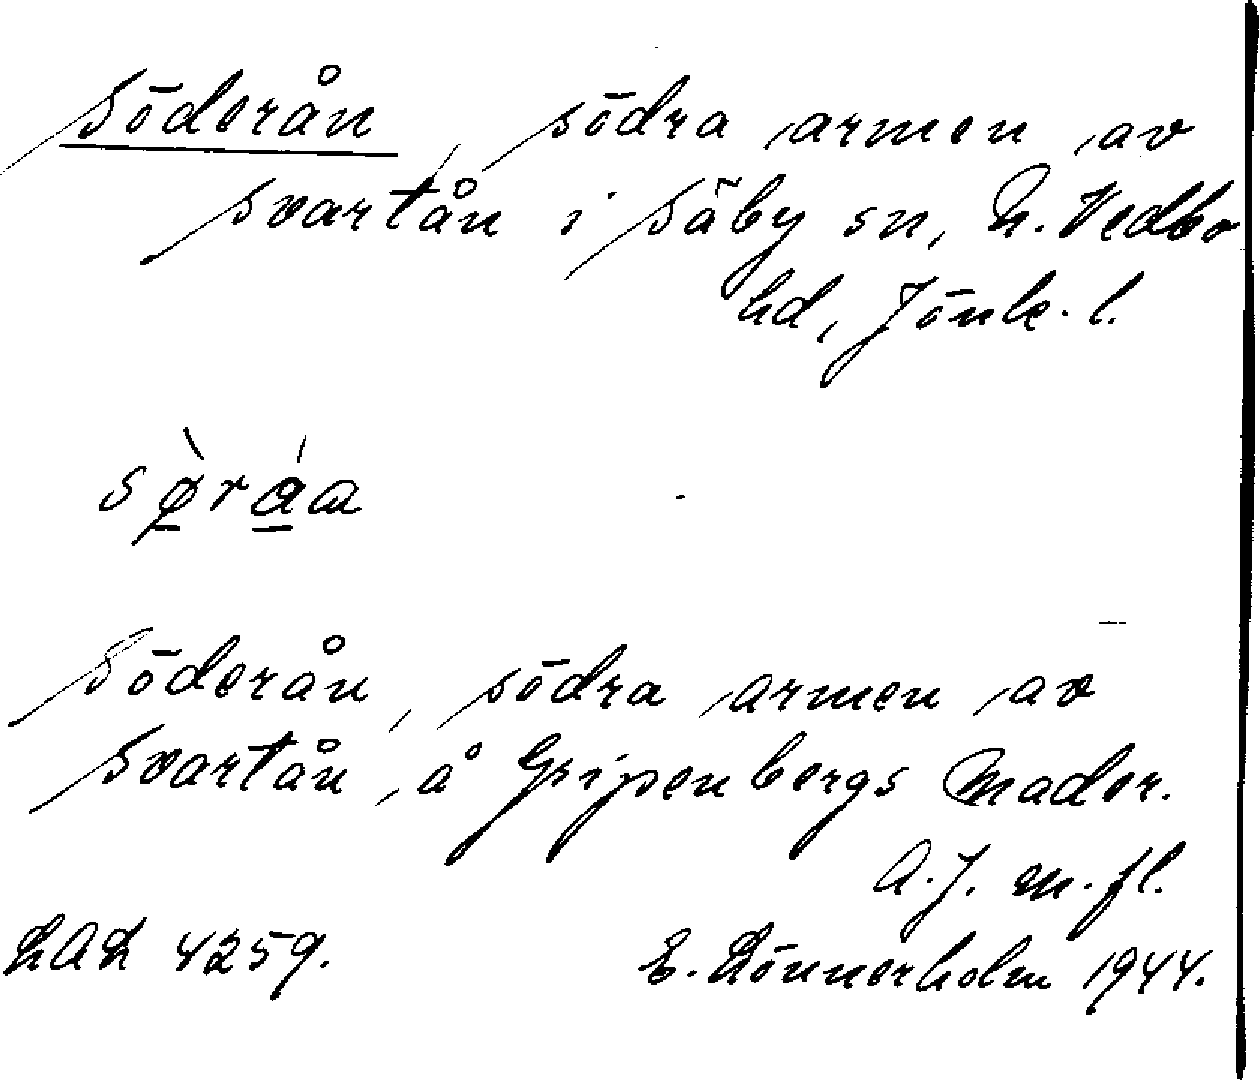 Söderån, södra armen av
Svartån i Säby sn, N. Vedbo
hd, Jönk. l.
sø̀ráa
Söderån, södra armen av
Svartån, å Gripenbergs Mader.
A.J. m.fl.
LAL 4259.
E. Lönnerholm 1944.